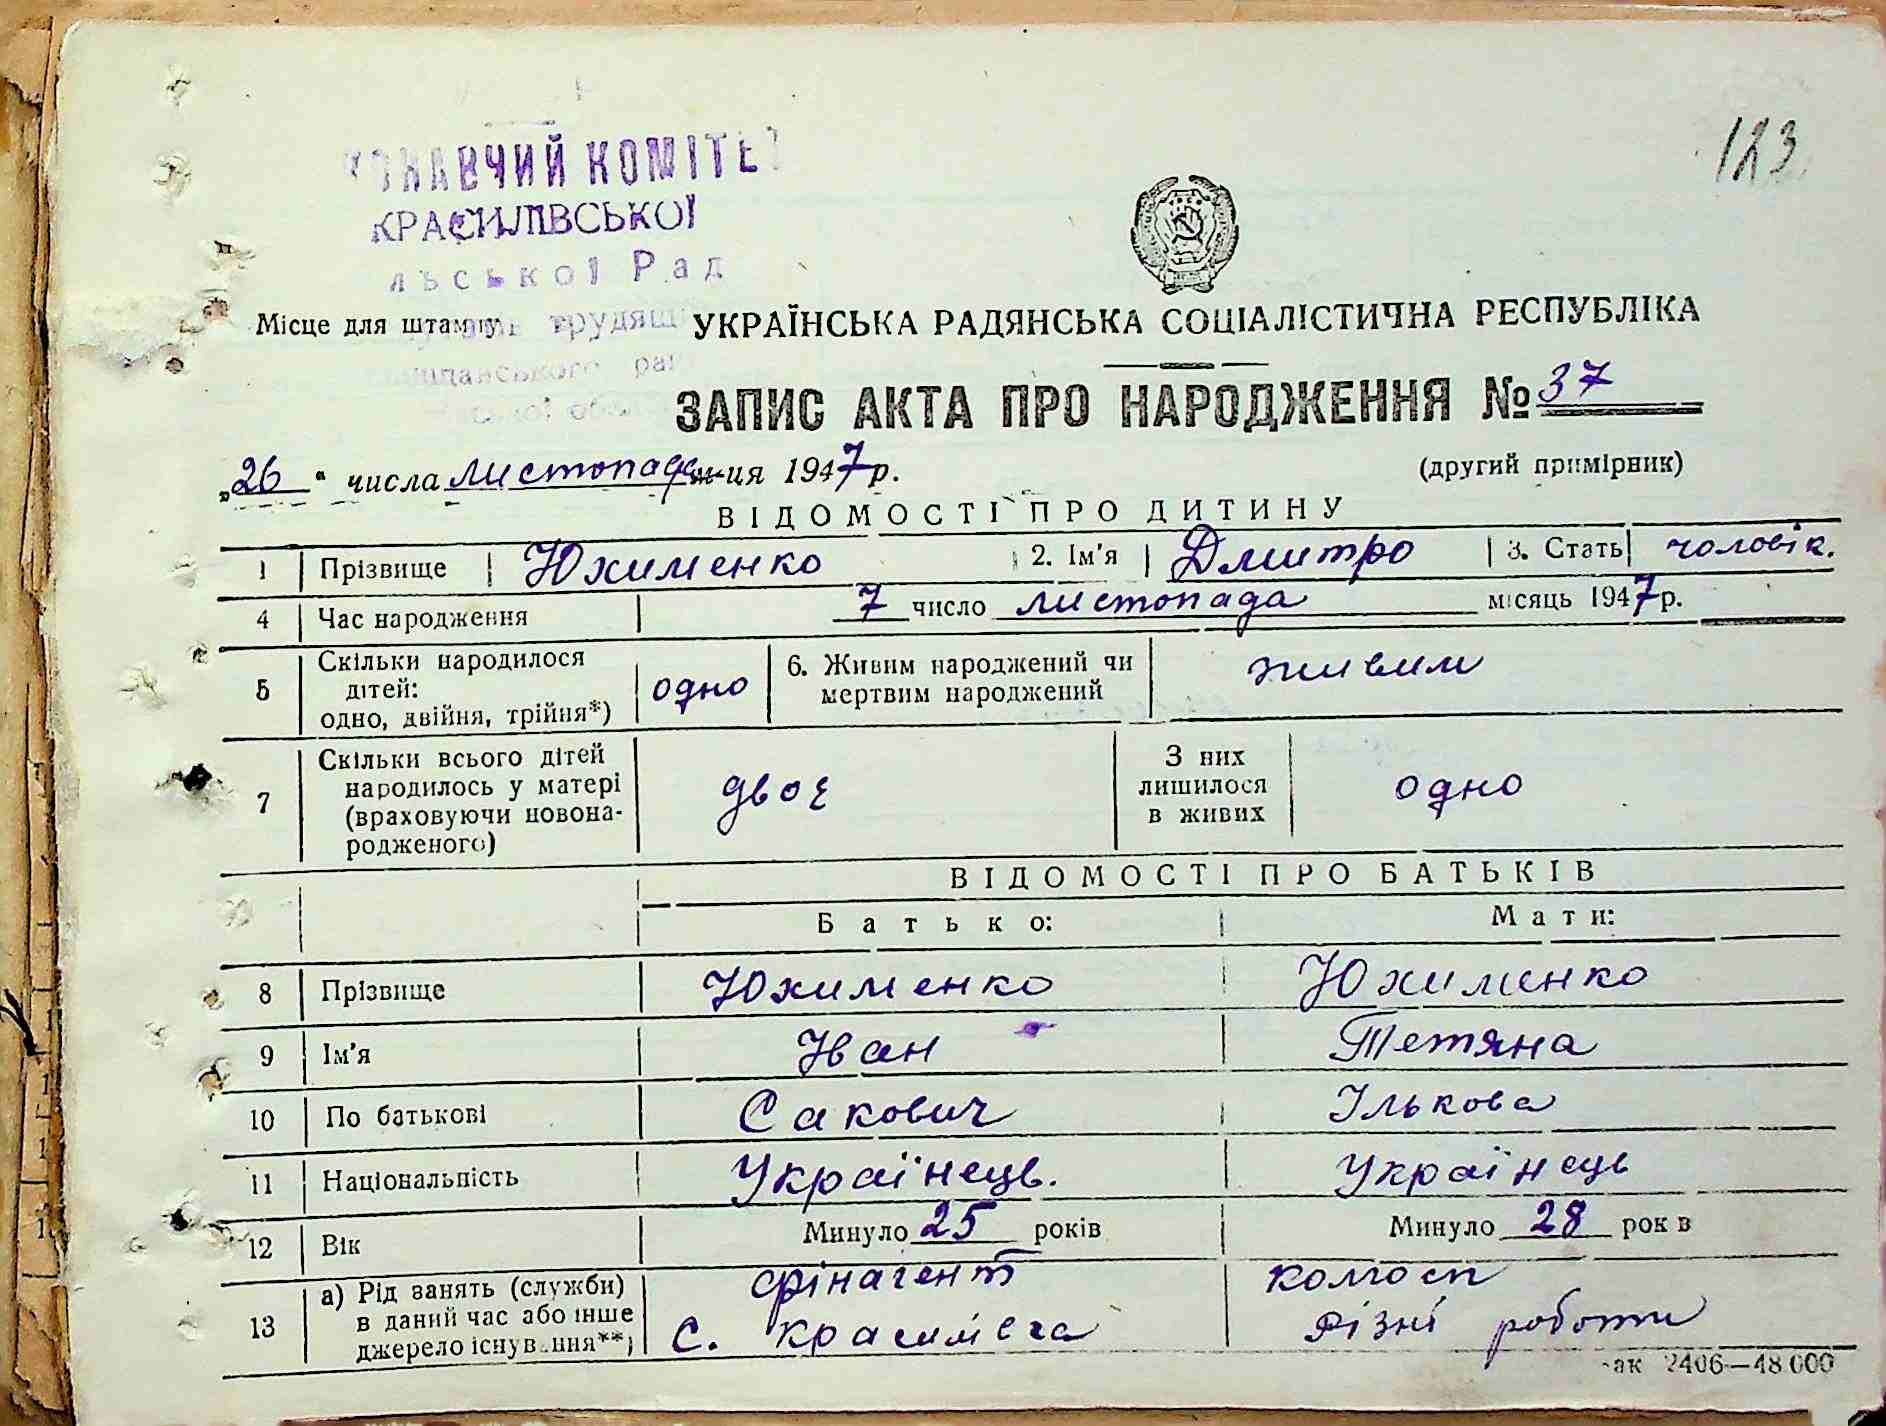 123
КОМІТЕ
КРАСИЛІВСЬКОЇ
Рад
Місце для штампу трудящ
УКРАЇНСЬКА РАДЯНСЬКА СОЦІАЛІСТИЧНА РЕСПУБЛІКА
ЗАПИС АКТА ПРО НАРОДЖЕННЯ № 37
„26" числа листопада м-ця 1947 р.
(другий примірник)
ВІДОМОСТІ ПРО ДИТИНУ
1 Прізвище Юхименко 2. Ім'я Дмитро 3. Стать чоловік.
4 Час народження 7 число листопада місяць 1947 р.
5 Скільки народилося дітей: одно, двійня, трійня*) одно 6. Живим народжений чи мертвим народжений живим
7 Скільки всього дітей народилось у матері (враховуючи новонародженого) двоє З них лишилося в живих одно
ВІДОМОСТІ ПРО БАТЬКІВ
Батько: Мати:
8 Прізвище Юхименко Юхименко
9 Ім'я Іван Тетяна
10 По батькові Сакович Ількова
11 Національність Українець. Українець
12 Вік Минуло 25 років Минуло 28 рок в
13 а) Рід занять (служби) в даний час або інше джерело існув ння**) фінагент колгосп
с. різні роботи
ак 2406—48 000